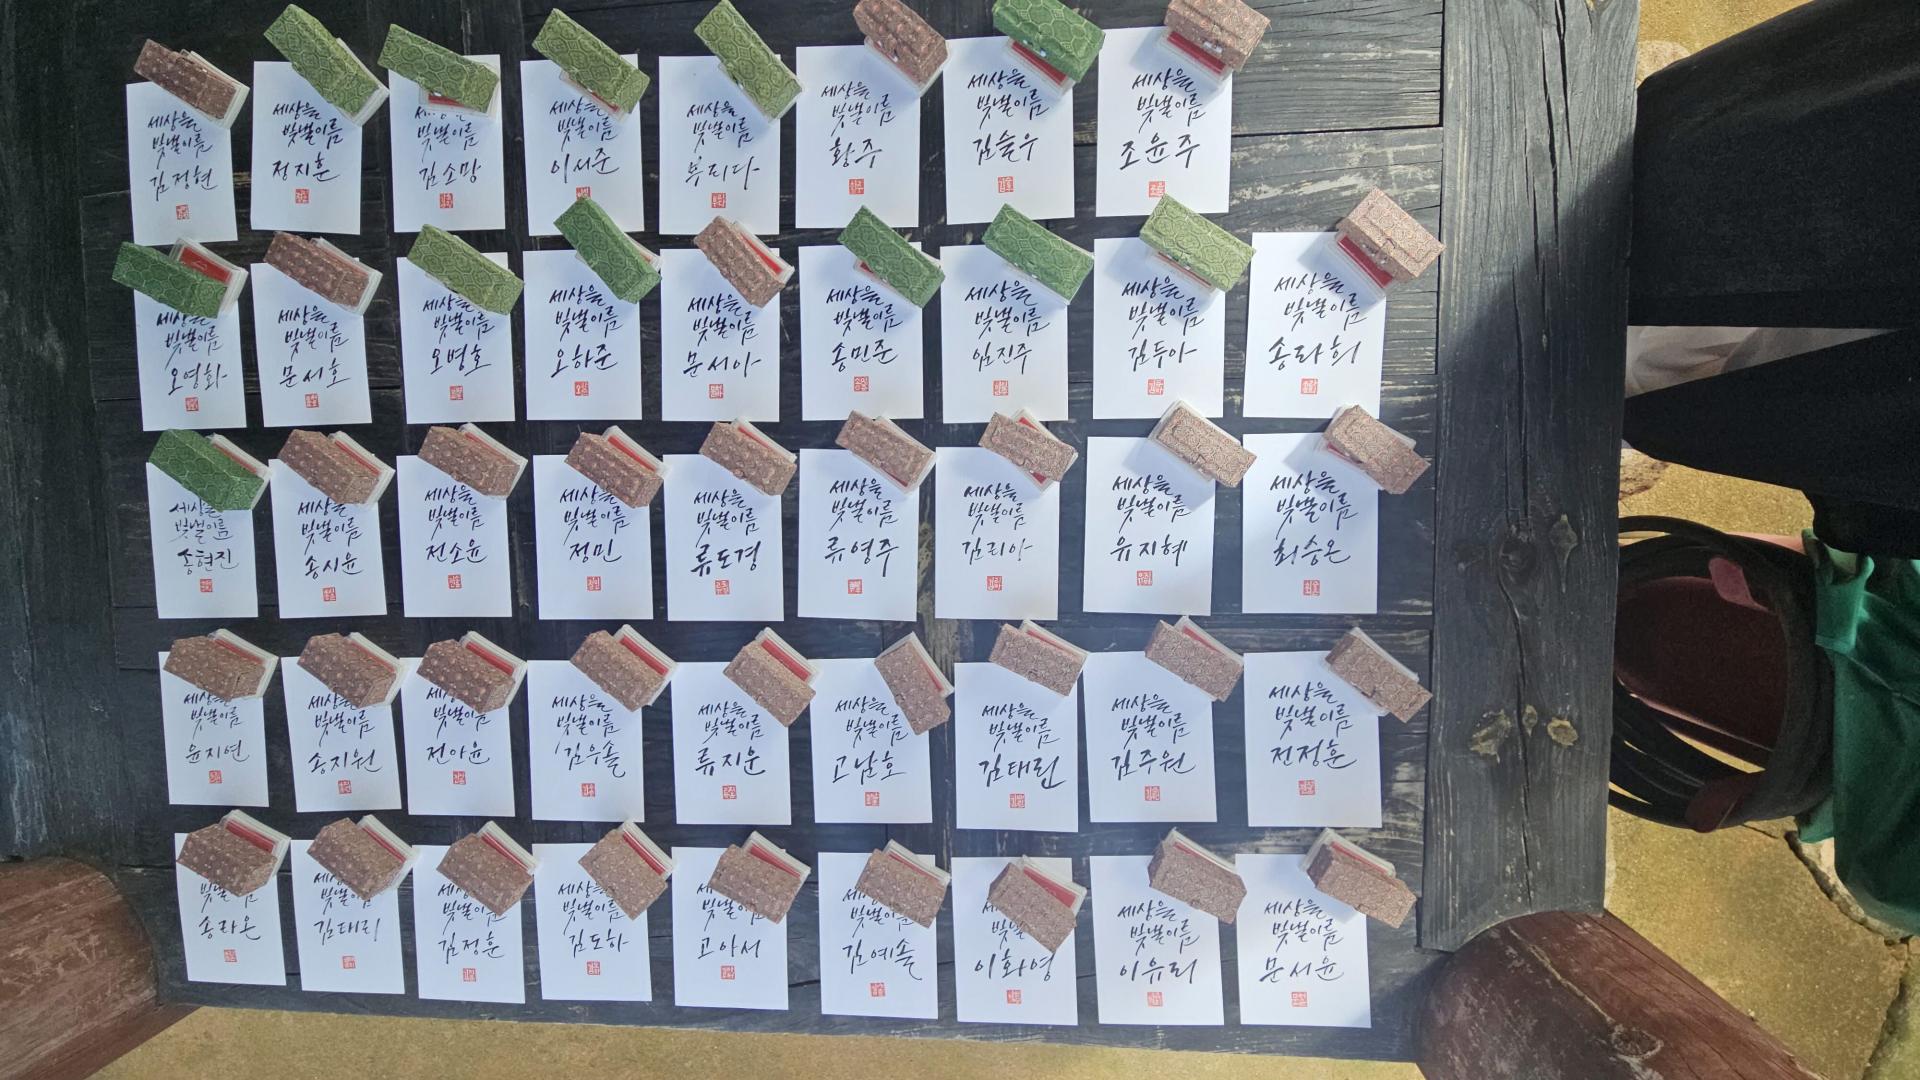 세상을
빛낼이름
김정현
세상을
빛낼이름
정지훈
세상을
빛낼이름
김소망
세상을
빛낼이름
이서준
세상을
빛낼이름
뚜리다
세상을
빛낼이름
황주
세상을
빛낼이름
김슬우
세상을
빛낼이름
조윤주
세상을
빛낼이름
오영화
세상을
빛낼이름
문서호
세상을
빛낼이름
오병호
세상을
빛낼이름
오하준
세상을
빛낼이름
문서아
세상을
빛낼이름
송민준
세상을
빛낼이름
임진주
세상을
빛낼이름
김두아
세상을
빛낼이름
송라희
세상을
빛낼이름
송현진
세상을
빛낼이름
송시윤
세상을
빛낼이름
전소윤
세상을
빛낼이름
정민
세상을
빛낼이름
류도경
세상을
빛낼이름
류영주
세상을
빛낼이름
김리아
세상을
빛낼이름
유지혜
세상을
빛낼이름
최승온
세상을
빛낼이름
윤지연
세상을
빛낼이름
송지원
세상을
빛낼이름
전아윤
세상을
빛낼이름
김우솔
세상을
빛낼이름
류지운
세상을
빛낼이름
고남호
세상을
빛낼이름
김태린
세상을
빛낼이름
김주원
세상을
빛낼이름
전정훈
빛낼이름
송라온
세상을
빛낼이름
김태리
세상을
빛낼이름
김정훈
세상을
빛낼이름
김도하
세상을
빛낼이름
고아서
세상을
빛낼이름
김예솔
세상을
빛낼이름
이화영
세상을
빛낼이름
이유리
세상을
빛낼이름
문서윤